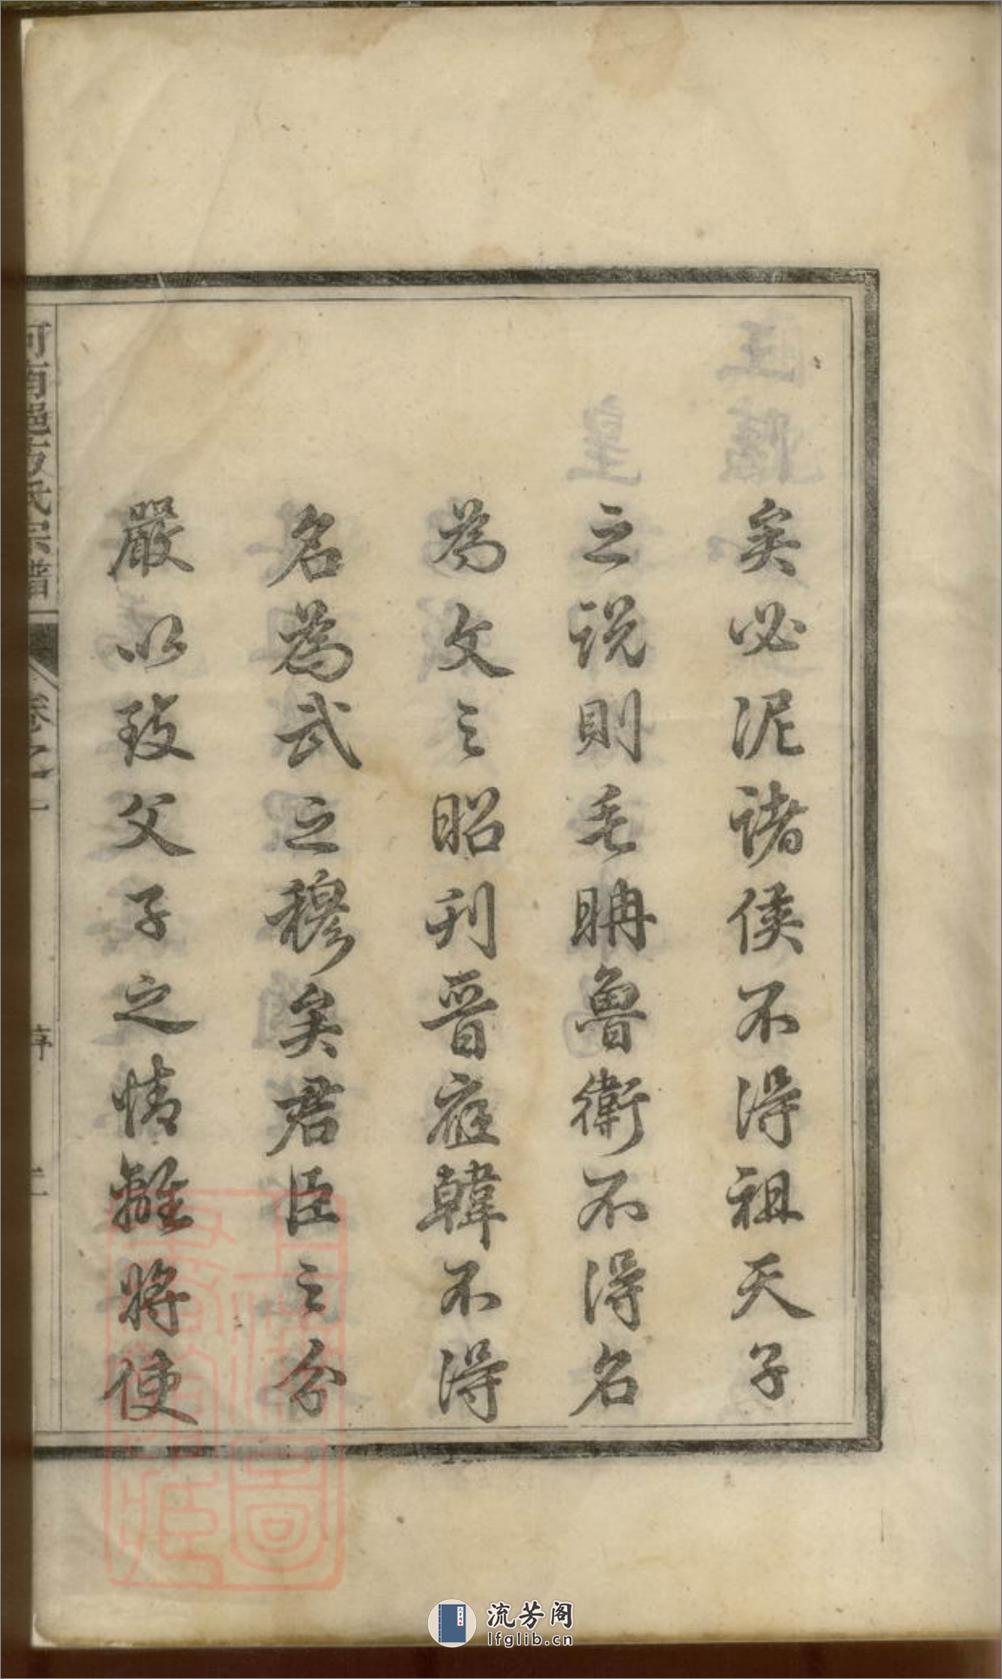 矣必泥諸侯不得祖天子
之說則毛聃魯衛不得名
為文之昭刊晋應韓不得
名為武之穆矣君臣之分
嚴以致父子之情離將使
河南邑氏宗譜 卷之一 序 二
上海圖書館藏
流芳阁
lfglib.cn